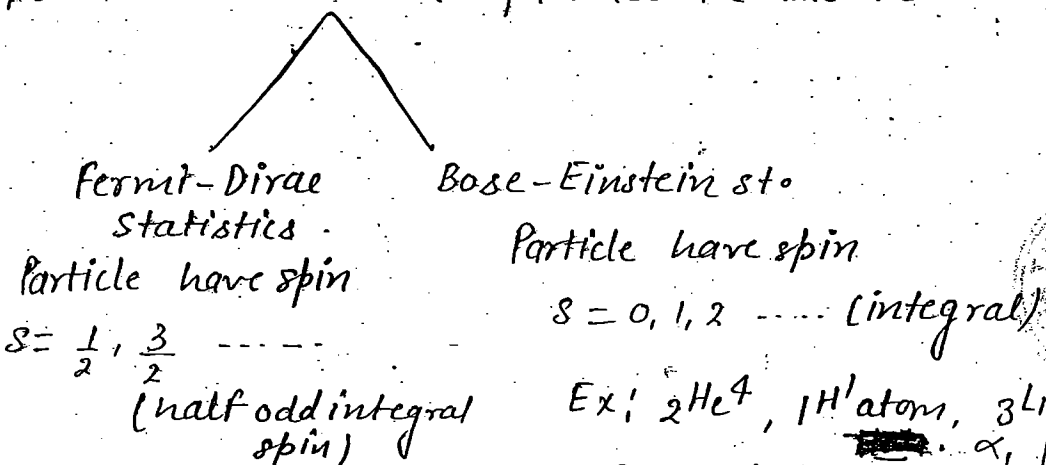 Fermi-Dirac
Statistics.
Particle have spin
S = 1/2, 3/2 ------
(half odd integral
spin)
Bose-Einstein st.
Particle have spin
S = 0, 1, 2 ..... (integral)
Ex: ₂He⁴, ₁H¹ atom,
α,